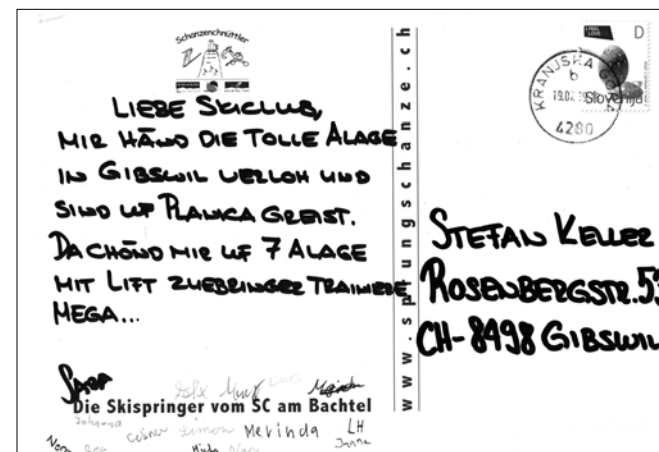 Schanzenchnüttler
LIEBE SKICLUB,
MIR HÄND DIE TOLLE ALAGE
IN GIBSWIL VERLOH UND
SIND UF PLANICA GREIST.
DA CHÖND MIR UF 7 ALAGE
MIT LIFT ZUEBRINGER TRAINIERE
MEGA...
SARA
Die Skispringer vom SC am Bachtel
Johanna
Simon Merinda LH
www.sprungschanze.ch
D
Slovenija
KRANJSKA GORA
b
19.02.
4280
STEFAN KELLER
ROSENBERGSTR. 53
CH-8498 GIBSWIL